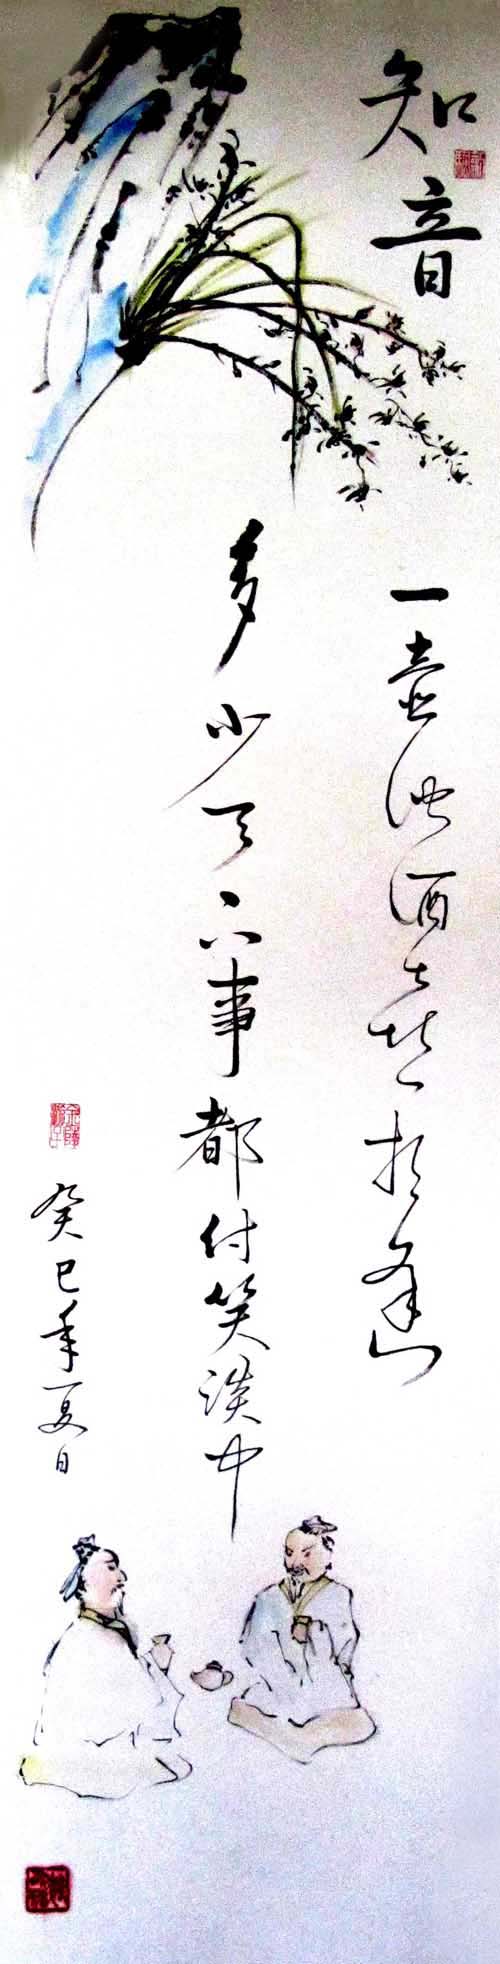 知音
一壶浊酒喜相逢
多少天下事都付笑谈中
癸巳年夏日